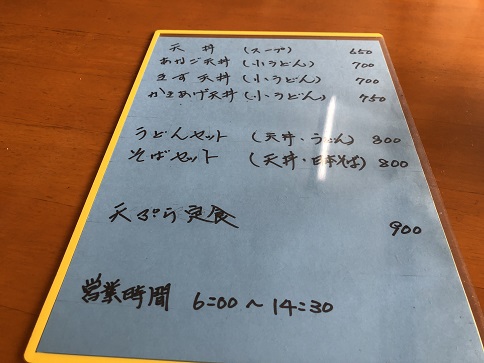 天丼 (スープ) 650
あなご天丼 (小うどん) 700
きす天丼 (小うどん) 700
かきあげ天丼 (小うどん) 750
うどんセット (天丼・うどん) 800
そばセット (天丼・日本そば) 800
天ぷら定食 900
営業時間 6:00～14:30